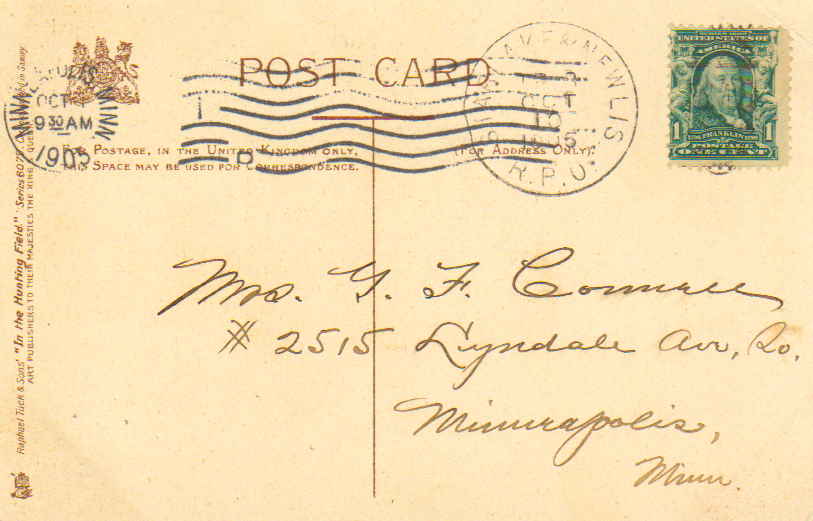 POST CARD
FOR POSTAGE, IN THE UNITED KINGDOM ONLY,
THIS SPACE MAY BE USED FOR CORRESPONDENCE.
(FOR ADDRESS ONLY).
MINNEAPOLIS MINN.
OCT
9 30 AM
1905
OCT
R.P.O.
UNITED STATES OF
AMERICA
1 1
FRANKLIN
POSTAGE
ONE CENT
Mrs. G. F.
# 2515 Lyndale Ave, So.
Minneapolis,
Minn.
Raphael Tuck & Sons' "In the Hunting Field." Series
ART PUBLISHERS TO THEIR MAJESTIES THE KING & QUEEN